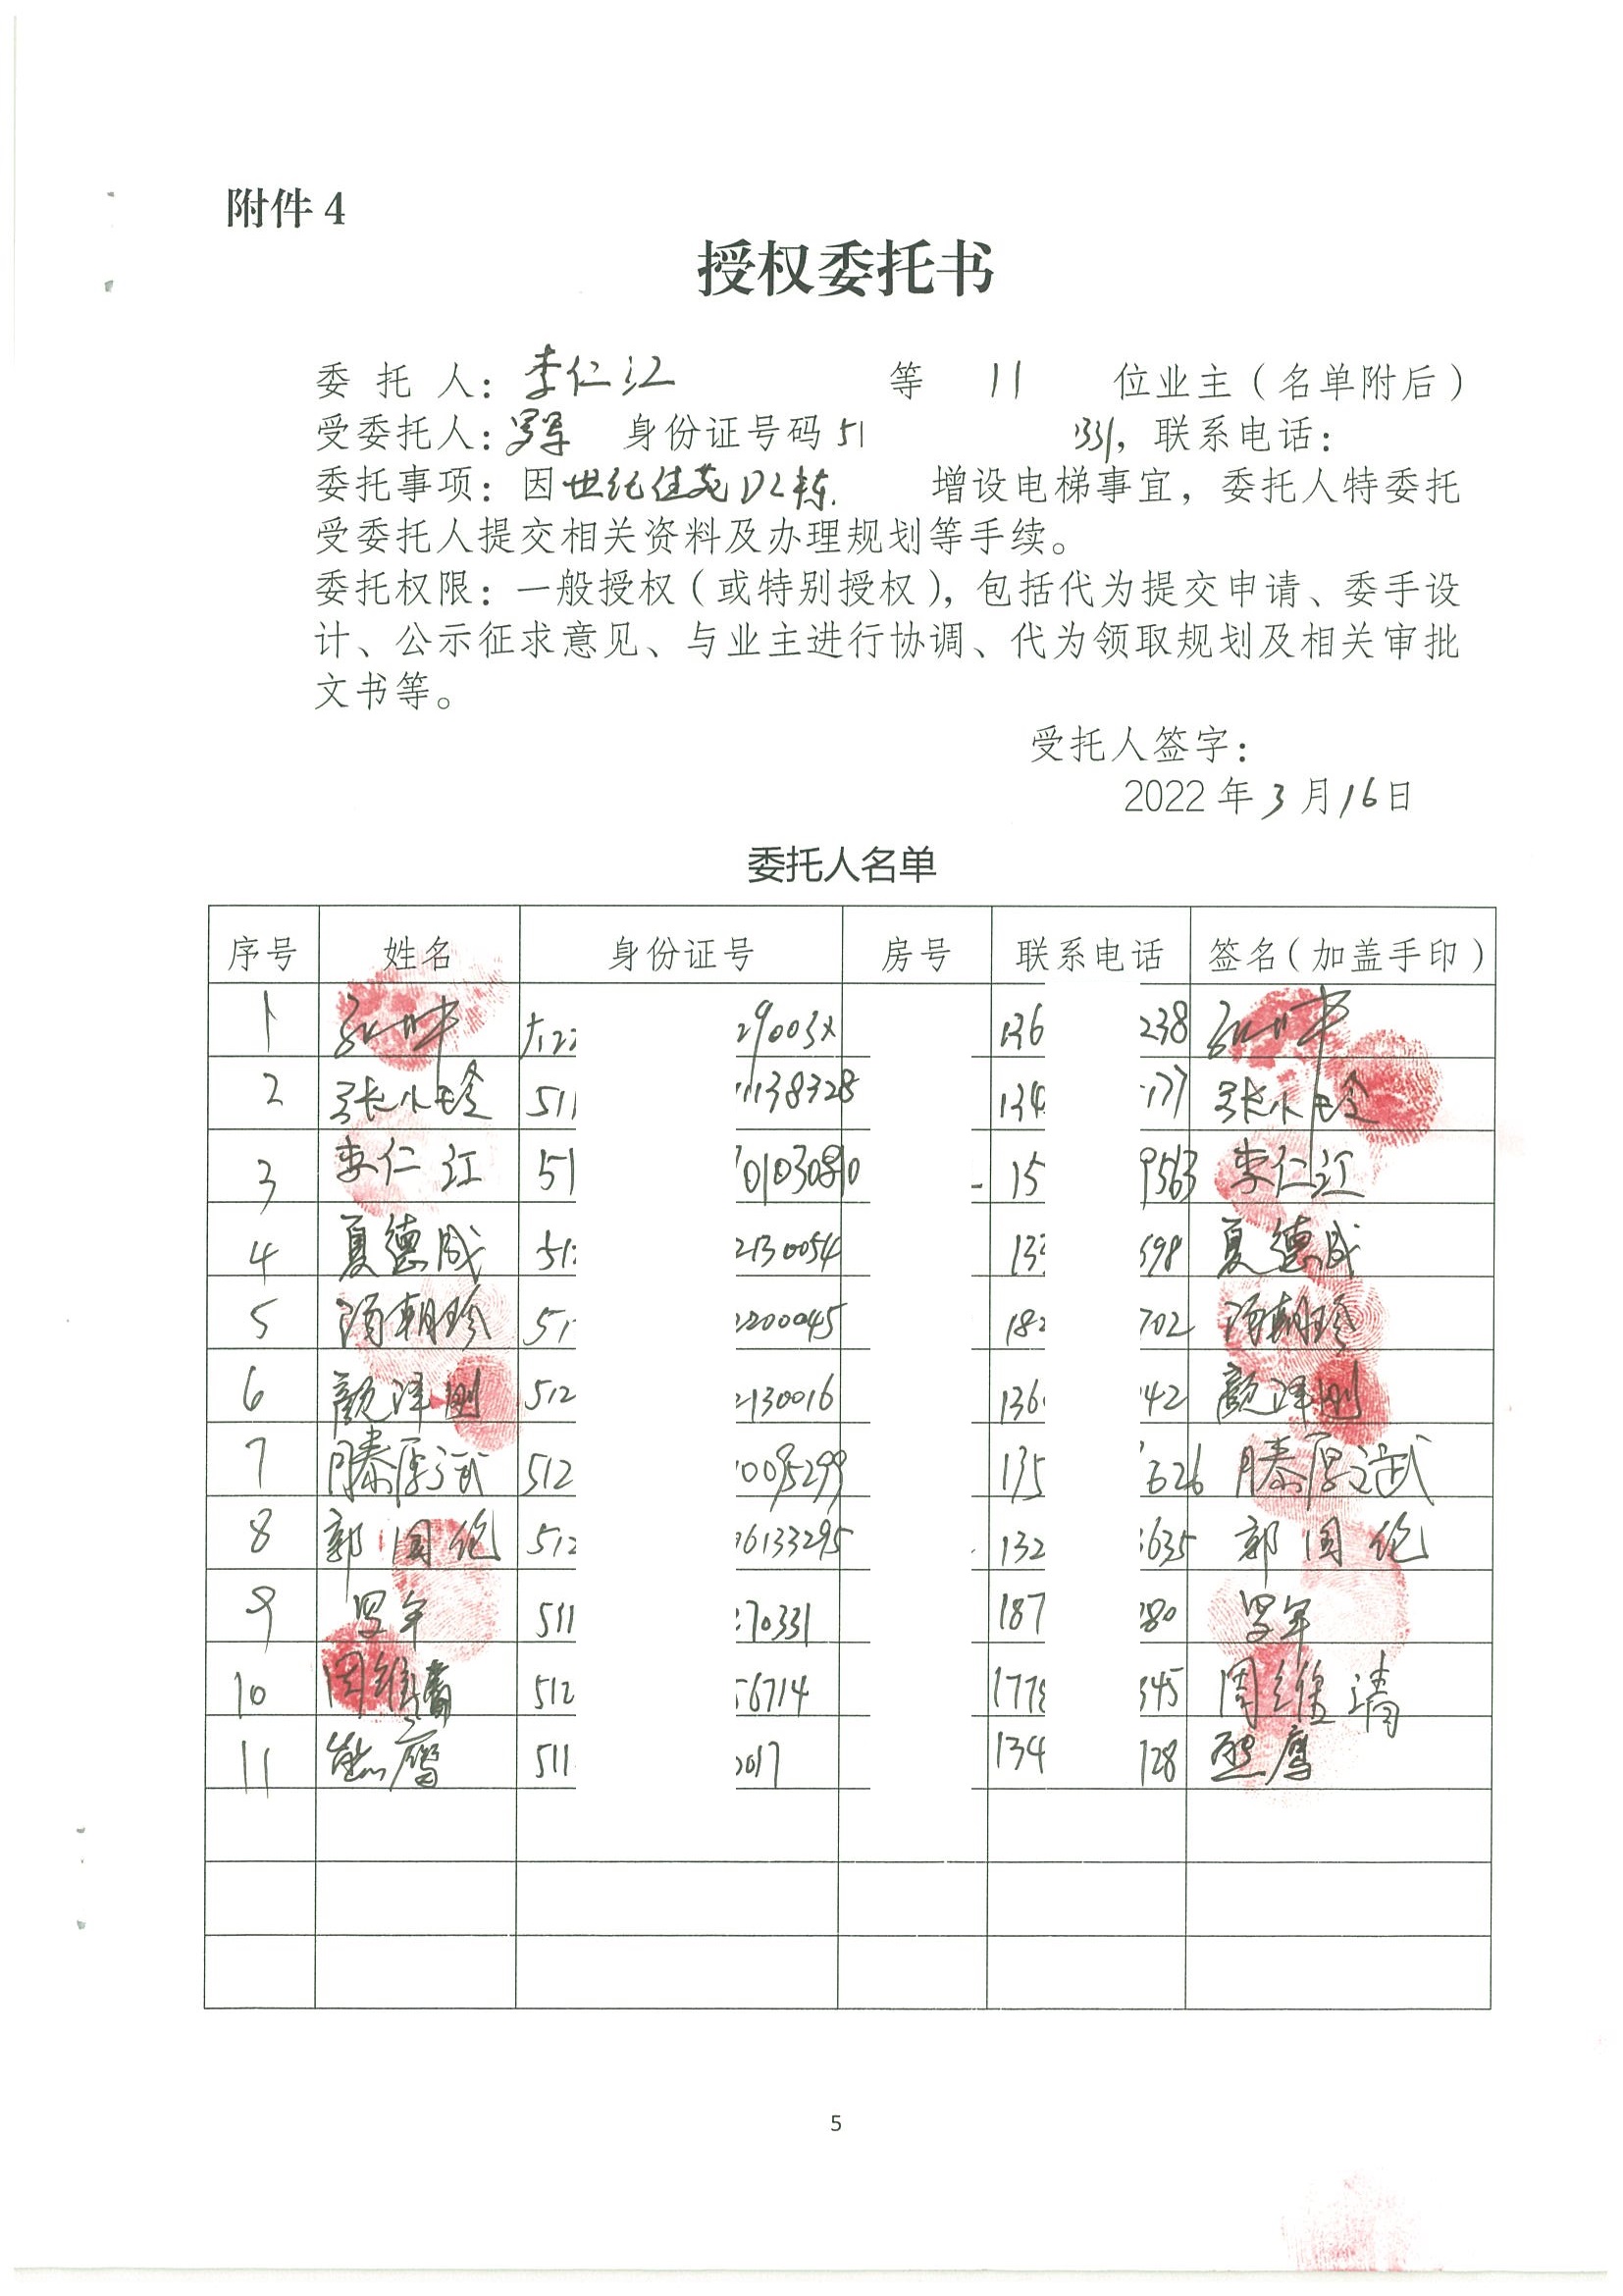 附件 4
授权委托书
委 托 人：李仁江 等 11 位业主（名单附后）
受委托人：罗军 身份证号码 51 331，联系电话：
委托事项：因世纪佳苑D2栋. 增设电梯事宜，委托人特委托
受委托人提交相关资料及办理规划等手续。
委托权限：一般授权（或特别授权），包括代为提交申请、委手设
计、公示征求意见、与业主进行协调、代为领取规划及相关审批
文书等。
受托人签字：
2022 年 3 月 16 日
委托人名单
序号 姓名 身份证号 房号 联系电话 签名（加盖手印）
1 29003X 136 238
2 张小玲 511 1138328 134 177 张小玲
3 李仁江 51 01030810 15 9563 李仁江
4 夏德成 51 2130054 133 598 夏德成
5 朝珍 51 2200045 182 702 朝珍
6 颜泽刚 512 2130016 136 42 颜泽刚
7 滕厚斌 512 0095299 135 626 滕厚斌
8 郭国伦 512 6133295 132 635 郭国伦
9 罗军 511 270331 187 380 罗军
10 周维清 512 56714 1778 345 周维清
11 熊鹰 511 0017 134 128 熊鹰
5